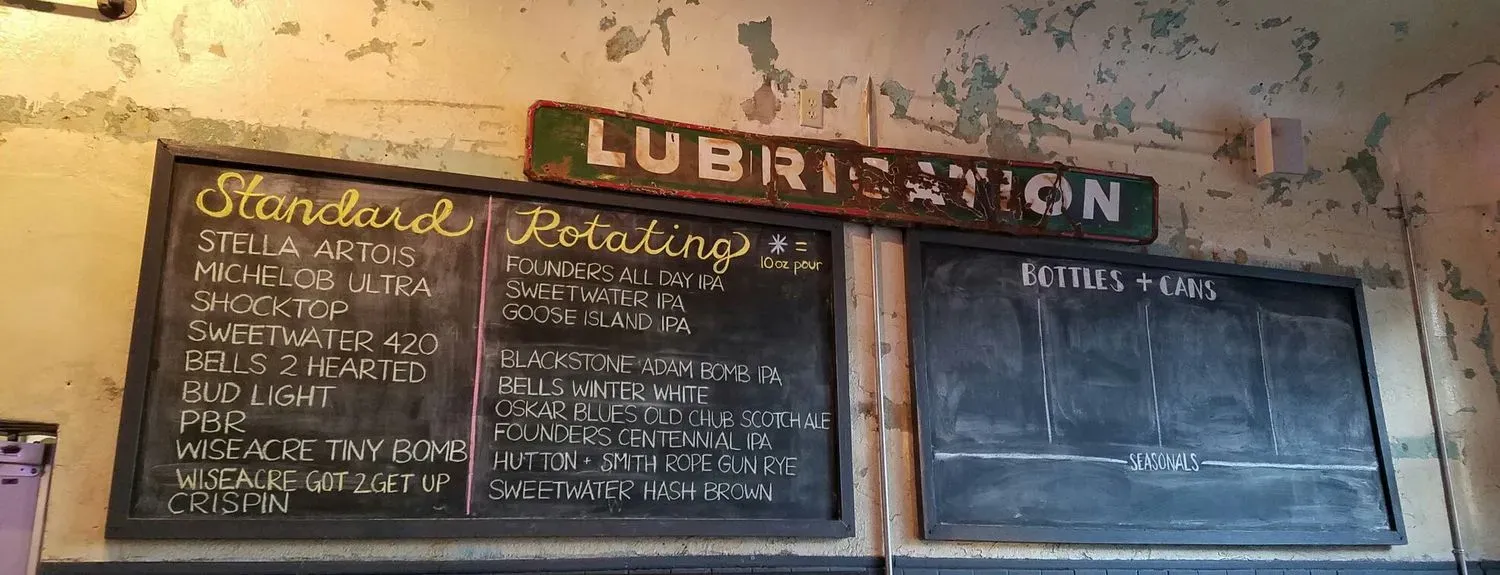 LUBRICATION
Standard
STELLA ARTOIS
MICHELOB ULTRA
SHOCKTOP
SWEETWATER 420
BELLS 2 HEARTED
BUD LIGHT
PBR
WISEACRE TINY BOMB
WISEACRE GOT 2 GET UP
CRISPIN
Rotating
* =
10 oz pour
FOUNDERS ALL DAY IPA
SWEETWATER IPA
GOOSE ISLAND IPA
BLACKSTONE ADAM BOMB IPA
BELLS WINTER WHITE
OSKAR BLUES OLD CHUB SCOTCH ALE
FOUNDERS CENTENNIAL IPA
HUTTON + SMITH ROPE GUN RYE
SWEETWATER HASH BROWN
BOTTLES + CANS
SEASONALS